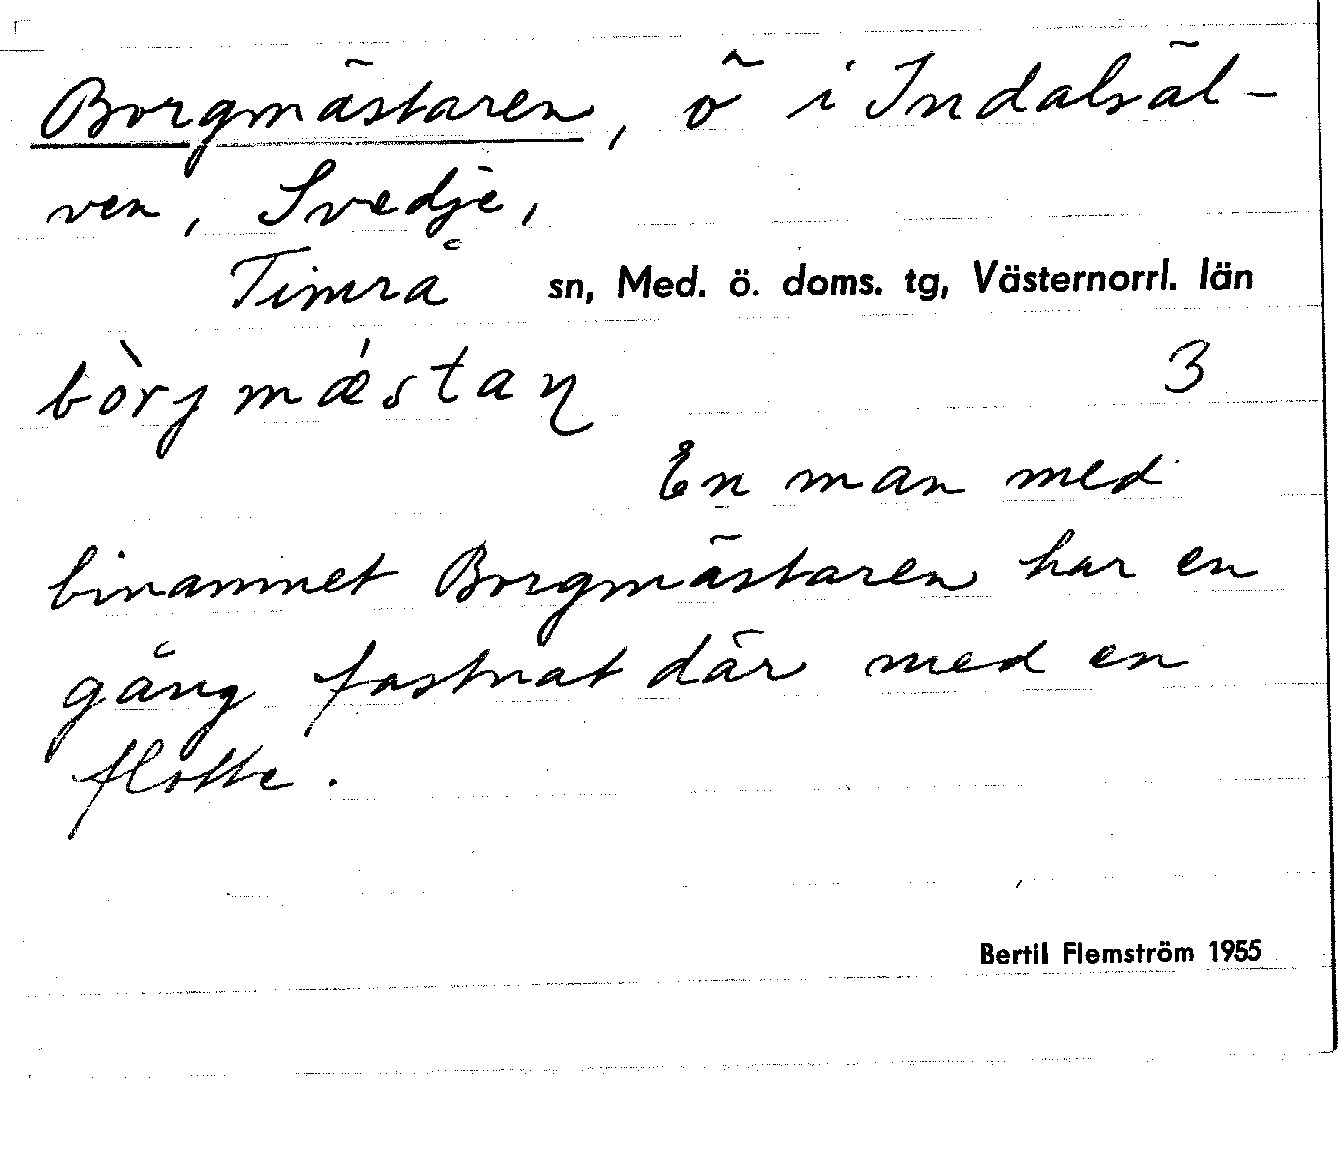 Borgmästaren, ö i Indalsäl-
ven, Svedje,
Timrå sn, Med. ö. doms. tg, Västernorrl. län
bòrjmǽstaɳ 3
En man med
binamnet Borgmästaren har en
gång fastnat där med en
flotte.
Bertil Flemström 1955